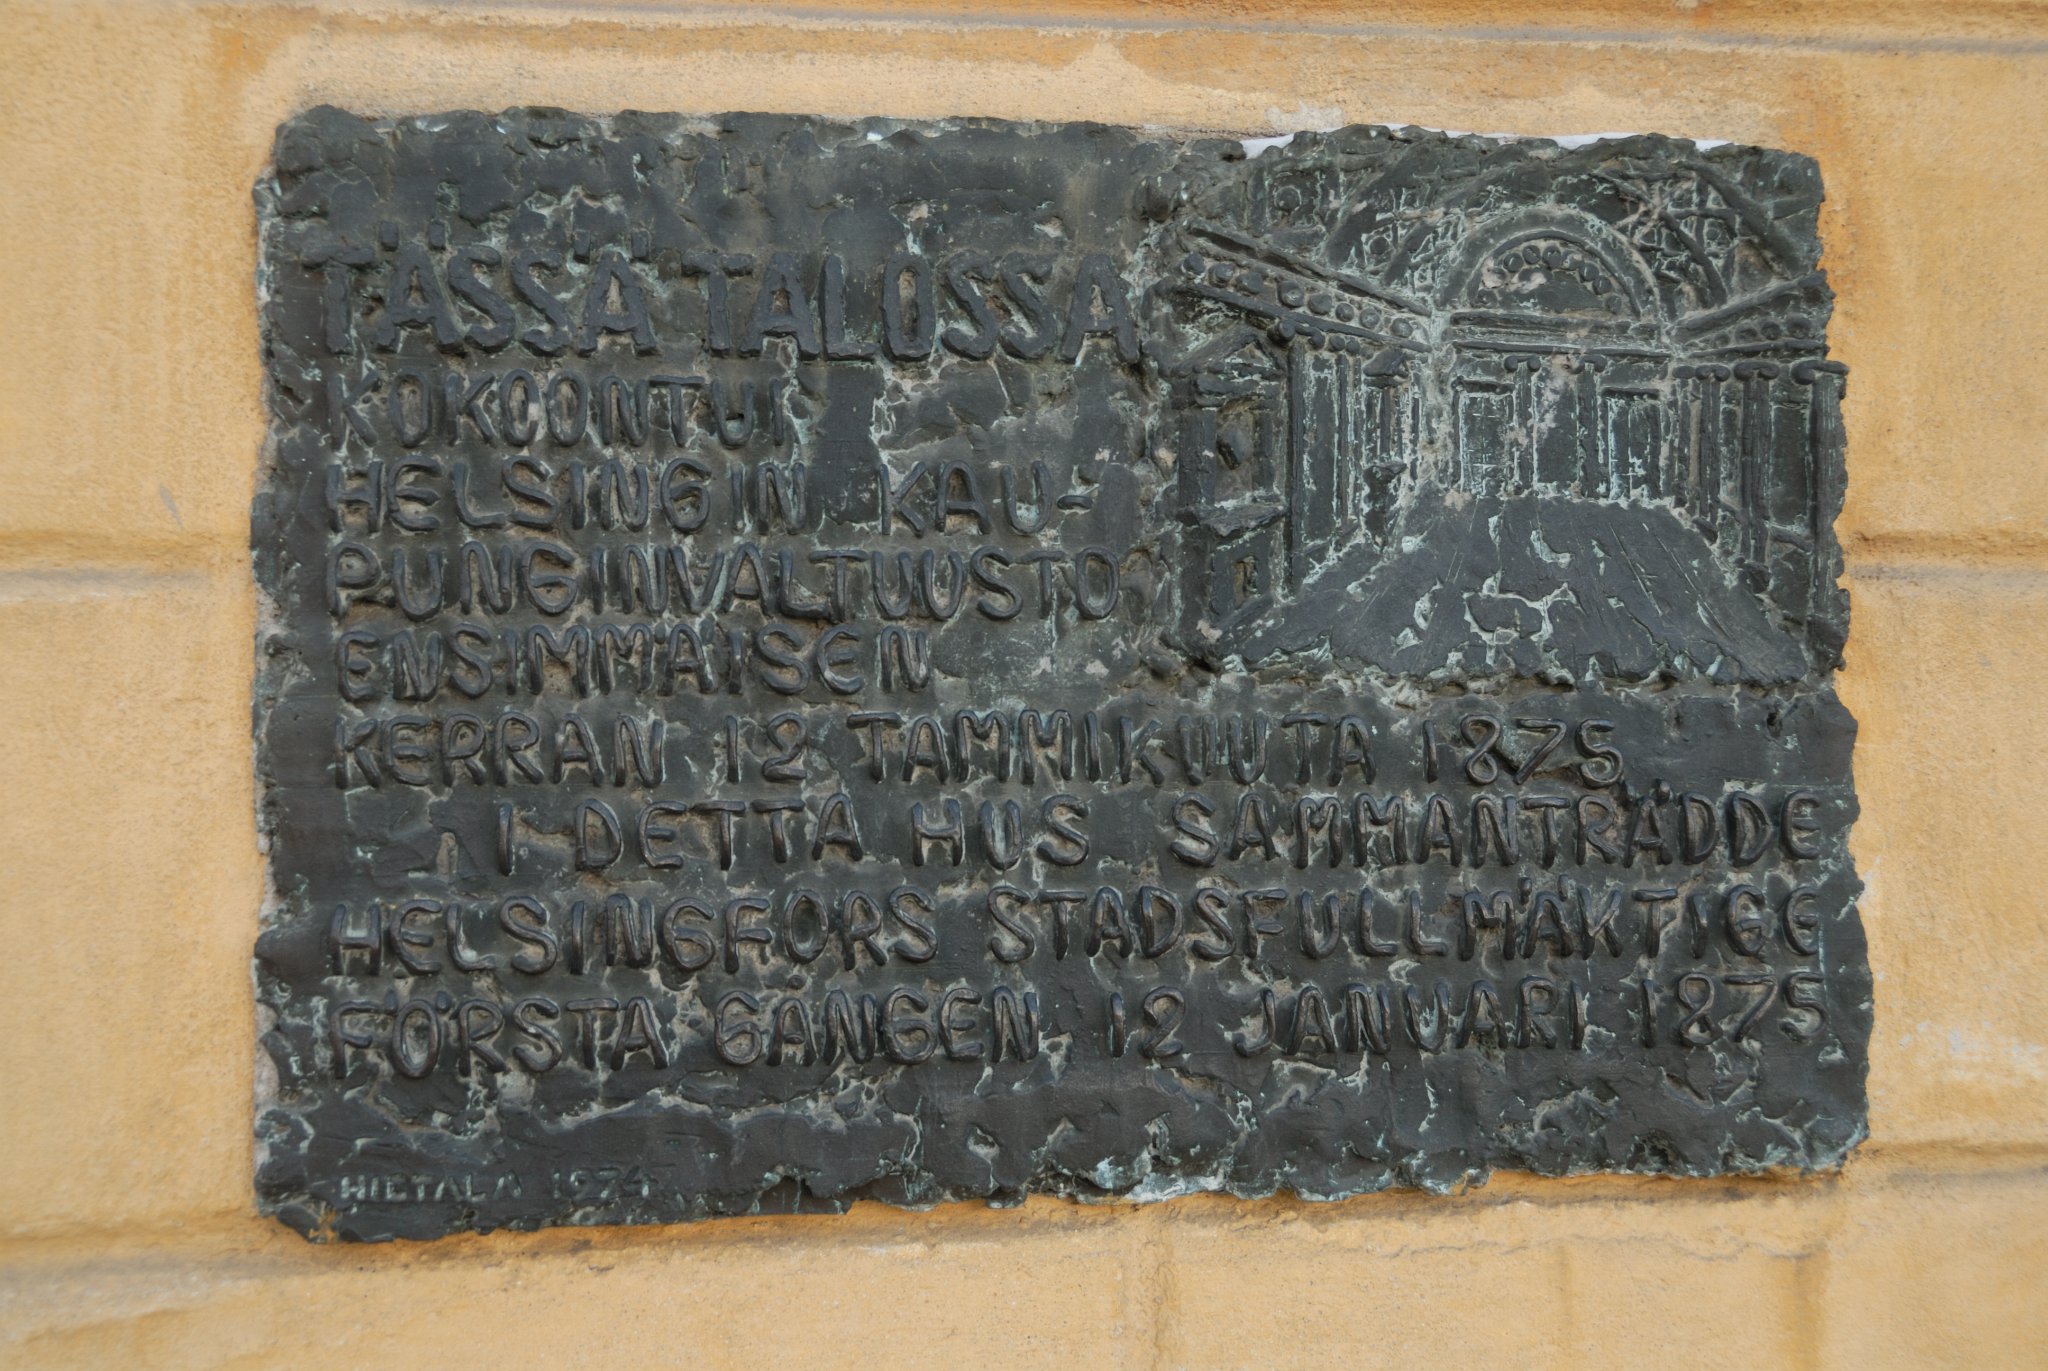 TÄSSÄ TALOSSA
KOKOONTUI
HELSINGIN KAU-
PUNGINVALTUUSTO
ENSIMMÄISEN
KERRAN 12 TAMMIKUUTA 1875
I DETTA HUS SAMMANTRÄDDE
HELSINGFORS STADSFULLMÄKTIGE
FÖRSTA GÅNGEN 12 JANUARI 1875
HIETALA 1974